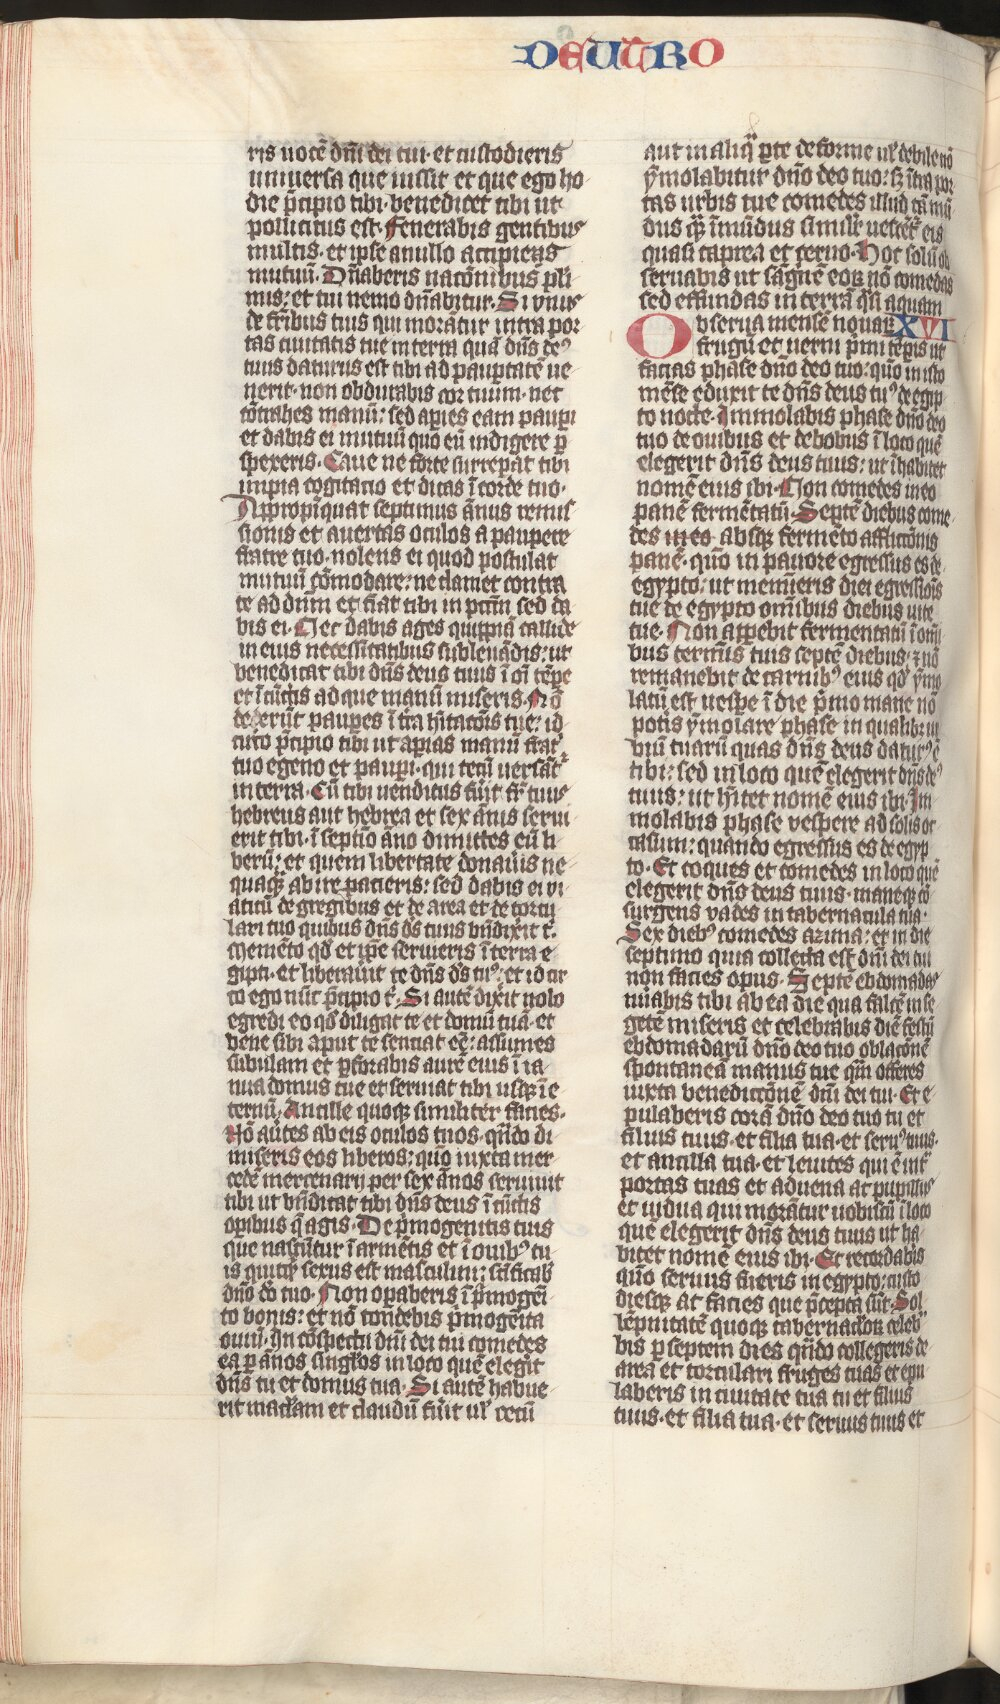 DEUTRO
ris uocē dn̄i dei tui· et custodieris
uniuersa que iussit et que ego ho
die p̄cipio tibi· benedicet tibi ut
pollicitus est· Fenerabis gentibus
multis· et ipse a nullo accipiens
mutuū· Dn̄aberis nacōnibus pli
mis: et tui nemo dn̄abitur· Si vnus
de fr̄ibus tuis qui morātur intra por
tas ciuitatis tue in terra quā dn̄s deꝰ
tuus daturus est tibi ad paupertatē ue
nerit· non obdurabis cor tuum· nec
cōtrahes manū: sed apies eam paupi
et dabis ei mutuū quo eū indigere p
spexeris· Caue ne forte surrepat tibi
impia cogitacio et dicas ī corde tuo·
Appropīquat septimus ānus remis
sionis et auertas oculos a paupere
fratre tuo· nolens ei quod postulat
mutuū cōmodare: ne clamet contra
te ad dnm et fiat tibi in pctm̄ sed da
bis ei· Nec dabis ages quippiā callide
in eius necessitatibus subleuādis: ut
benedicat tibi dn̄s deus tuus ī oī tēpe
et ī cūctis ad que manū miseris· Nō
deerūt paupes ī tra hītacōis tue: id
circo p̄cipio tibi ut apias manū frat
tuo egeno et paupi· qui tecū uersat̄
in terra· Cū tibi uenditus fūit fr̄ tuus
hebreus aut hebrea et sex ānis serui
erit tibi· ī septīo āno dimittes eū li
berū: et quem libertate donauīs ne
quaqꝫ abire pacieris: sed dabis ei vi
aticū de gregibus et de area et de torcu
lari tuo quibus dn̄s dꝰs tuus bn̄dixit t̄·
Memēto qd et ipe seruieris ī terra e
gipti· et liberauit te dn̄s dꝰs tuꝰ: et idcir
co ego nūc p̄cipio t̄· Si autē dixīt nolo
egredi eo qꝰ diligat te et domū tuā· et
bene sibi aput te senciat eē: assumes
subulam et pforabis aurē eius ī ia
nua domus tue et seruiat tibi usqꝫ ī e
ternū· Ancille quoqꝫ similiter facies·
Nō aūtes ab eis oculos tuos· qn̄do di
miseris eos liberos: quō iuxta mer
cedē mercenarij per sex ānos seruiuit
tibi ut bn̄dicat tibi dn̄s deus ī cūctis
opibus q̄ agis· De p̄mogenitis tuis
que nascūtur ī armētis et ī ouibꝰ tu
is quicqꝫ sexus est masculini: scīficab
dn̄o dō tuo· Non opaberis ī p̄mogēi
to bouis: et nō tondebis p̄mogēita
ouiū· In cōspectu dn̄i dei tui comedes
ea p ānos singłos in loco quē elegīt
dn̄s tu et domus tua· Si autē habue
rit maclam et claudū fūit ul̄ cecū
aut in aliq̄ pte deforme ul̄ debile nō
ymolabitur dn̄o deo tuo: sꝫ ītra por
tas urbis tue comedes illud tā mū
dus qꝫ īmūdus simil̄r uescēt̄ eis
quasi caprea et ceruo· Hoc solū ob
seruabis ut sāgnē eoꝝ nō comedas
sed effundas in terrā q̄si aquam
Obserua mensē nouaꝝ XVI
frugū et uerni p̄mi tēpis ut
facias phase dn̄o deo tuo: qm̄ in isto
mēse eduxit te dn̄s deus tuꝰ de egip
to nocte· Immolabis phase dn̄o deo
tuo de ouibus et de bobus ī loco quē
elegerit dn̄s deus tuus: ut īhabitet
nomē eius ibi· Non comedes in eo
panē fermētatū· Septē diebus come
des in eo absqꝫ fermēto afflictōnis
panē· qm̄ in pauore egressus es de
egypto: ut memīeris diei egressiōis
tue de egypto omībus diebus uite
tue· Non appebit fermentatū ī omī
bus termīs tuis septē diebus: ꝫ nō
remanebit de carnibꝰ eius qd ymo
latū est uespe ī die p̄mo mane nō
potis ymolare phase in qualibꝫ ur
biū tuarū quas dn̄s deus daturꝰ ē
tibi: sed in loco quē elegerit dn̄s deꝰ
tuus: ut hītet nomē eius ibi· Im
molabis phase vespere ad solis oc
casum: quando egressus es de egyp
to· Et coques et comedes in loco quē
elegerit dn̄s deus tuus· maneqꝫ cō
surgens vades in tabernacula tua·
Sex diebꝰ comedes azima: et in die
septimo quia collecta est dn̄i dei tui
non facies opus· Septē ebdomadas
nūabis tibi ab ea die qua falcē in se
getē miseris et celebrabis diē festū
ebdomadarū dn̄o deo tuo oblacōnē
spontaneā manus tue qm̄ offeres
iuxta benedictōnē dn̄i dei tui· Et e
pulaberis corā dn̄o deo tuo tu et
filius tuus· et filia tua· et seruꝰ tuus·
et ancilla tua· et leuites qui ē int̄
portas tuas et aduena ac pupillus
et uidua qui morātur uobiscū ī loco
quē elegerit dn̄s deus tuus ut ha
bitet nomē eius ibi· Et recordabis
qm̄ seruus fueris in egypto: custo
diesqꝫ ac facies que p̄cepta sūt· Sol
lēpnitatē quoqꝫ tabernacłoꝝ celeb̄
bis p septem dies qn̄do collegeris de
area et torculari fruges tuas et epu
laberis in ciuitate tua tu et filius
tuus· et filia tua· et seruus tuus et